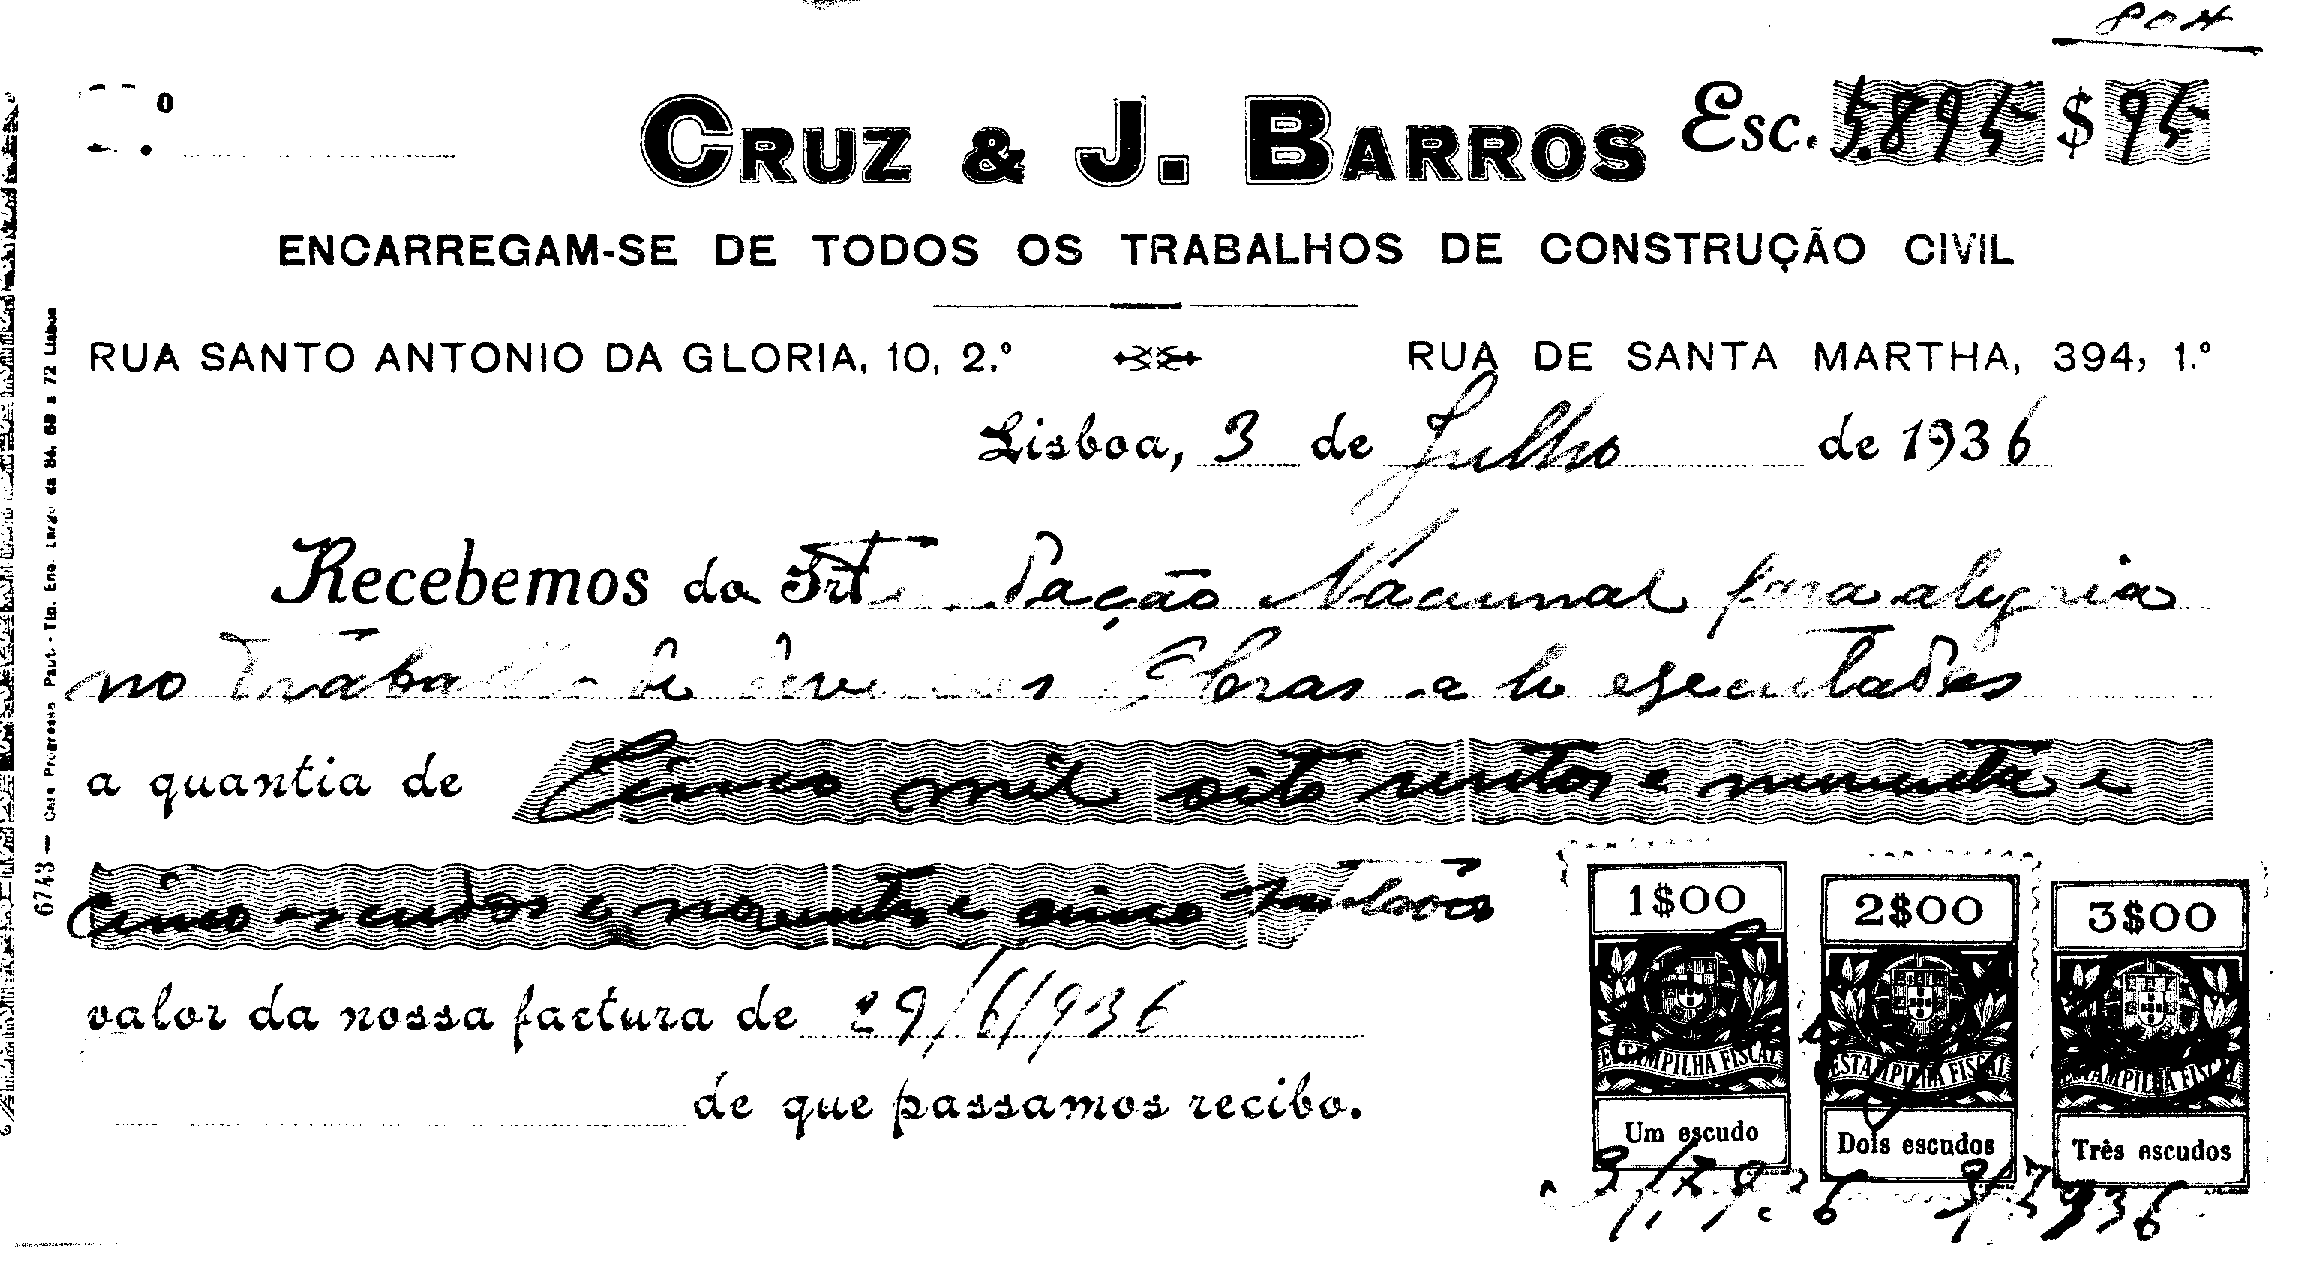 804
CRUZ & J. BARROS Esc. 5.895 $ 95
ENCARREGAM-SE DE TODOS OS TRABALHOS DE CONSTRUÇÃO CIVIL
RUA SANTO ANTONIO DA GLORIA, 10, 2.º RUA DE SANTA MARTHA, 394, 1.º
Lisboa, 3 de Julho de 1936
Recebemos da dação Nacional para alegria
no Trabalho de Obras executadas
a quantia de Cinco mil oito centos e noventa e
cinco escudos e noventa e cinco centavos
valor da nossa factura de 29/6/936
de que passamos recibo.
1$00 2$00 3$00
ESTAMPILHA FISCAL ESTAMPILHA FISCAL ESTAMPILHA FISCAL
Um escudo Dois escudos Três escudos
3/7/936 3/7/936
6743 —